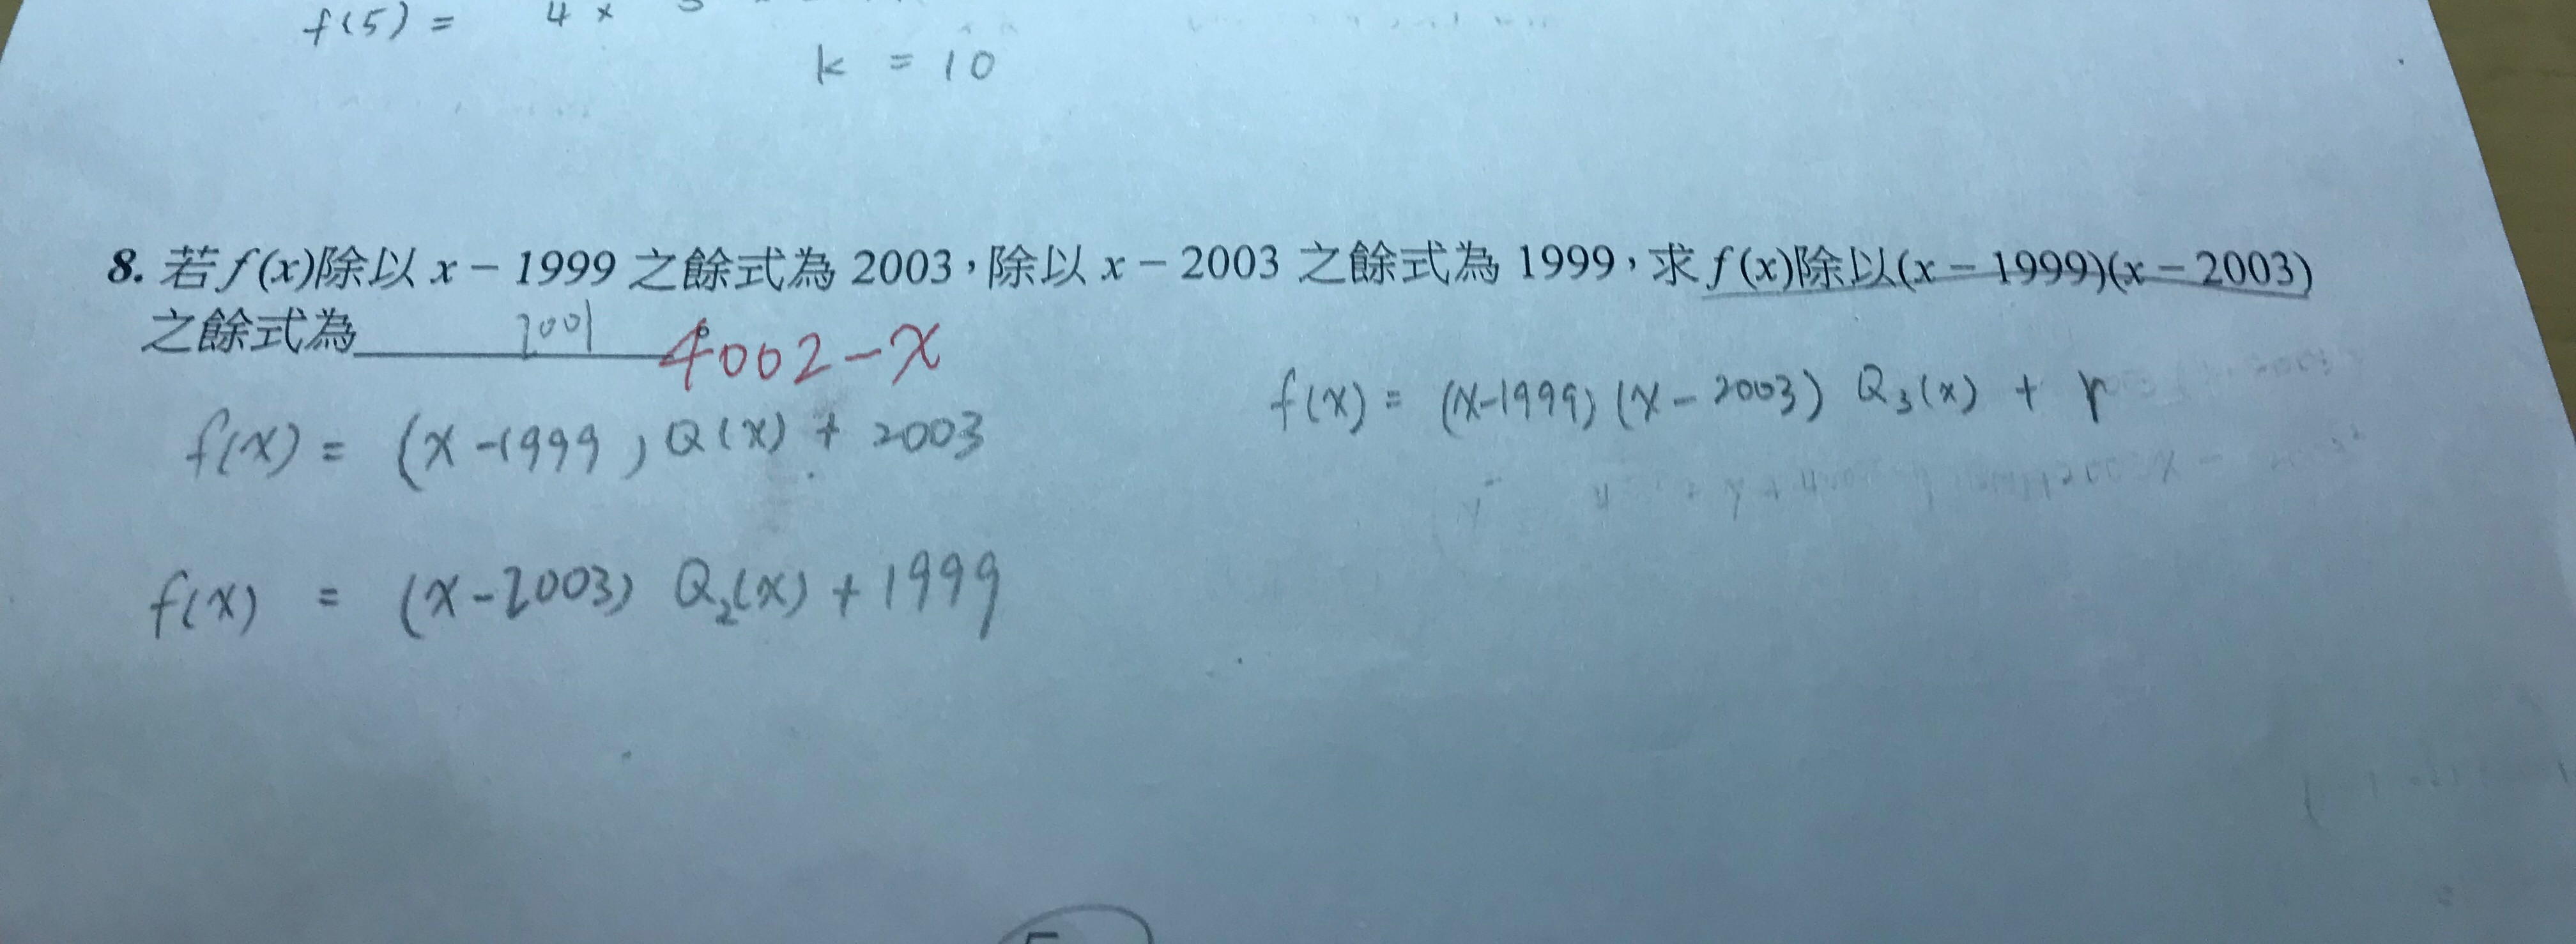 f(5) = 4 ×
k = 10
8. 若 f (x)除以 x − 1999 之餘式為 2003，除以 x − 2003 之餘式為 1999，求 f (x)除以(x − 1999)(x − 2003)
之餘式為 2001 4002 − x
f(x) = (x-1999) Q(x) + 2003
f(x) = (x-1999) (x - 2003) Q₃(x) + r
f(x) = (x-2003) Q₂(x) + 1999